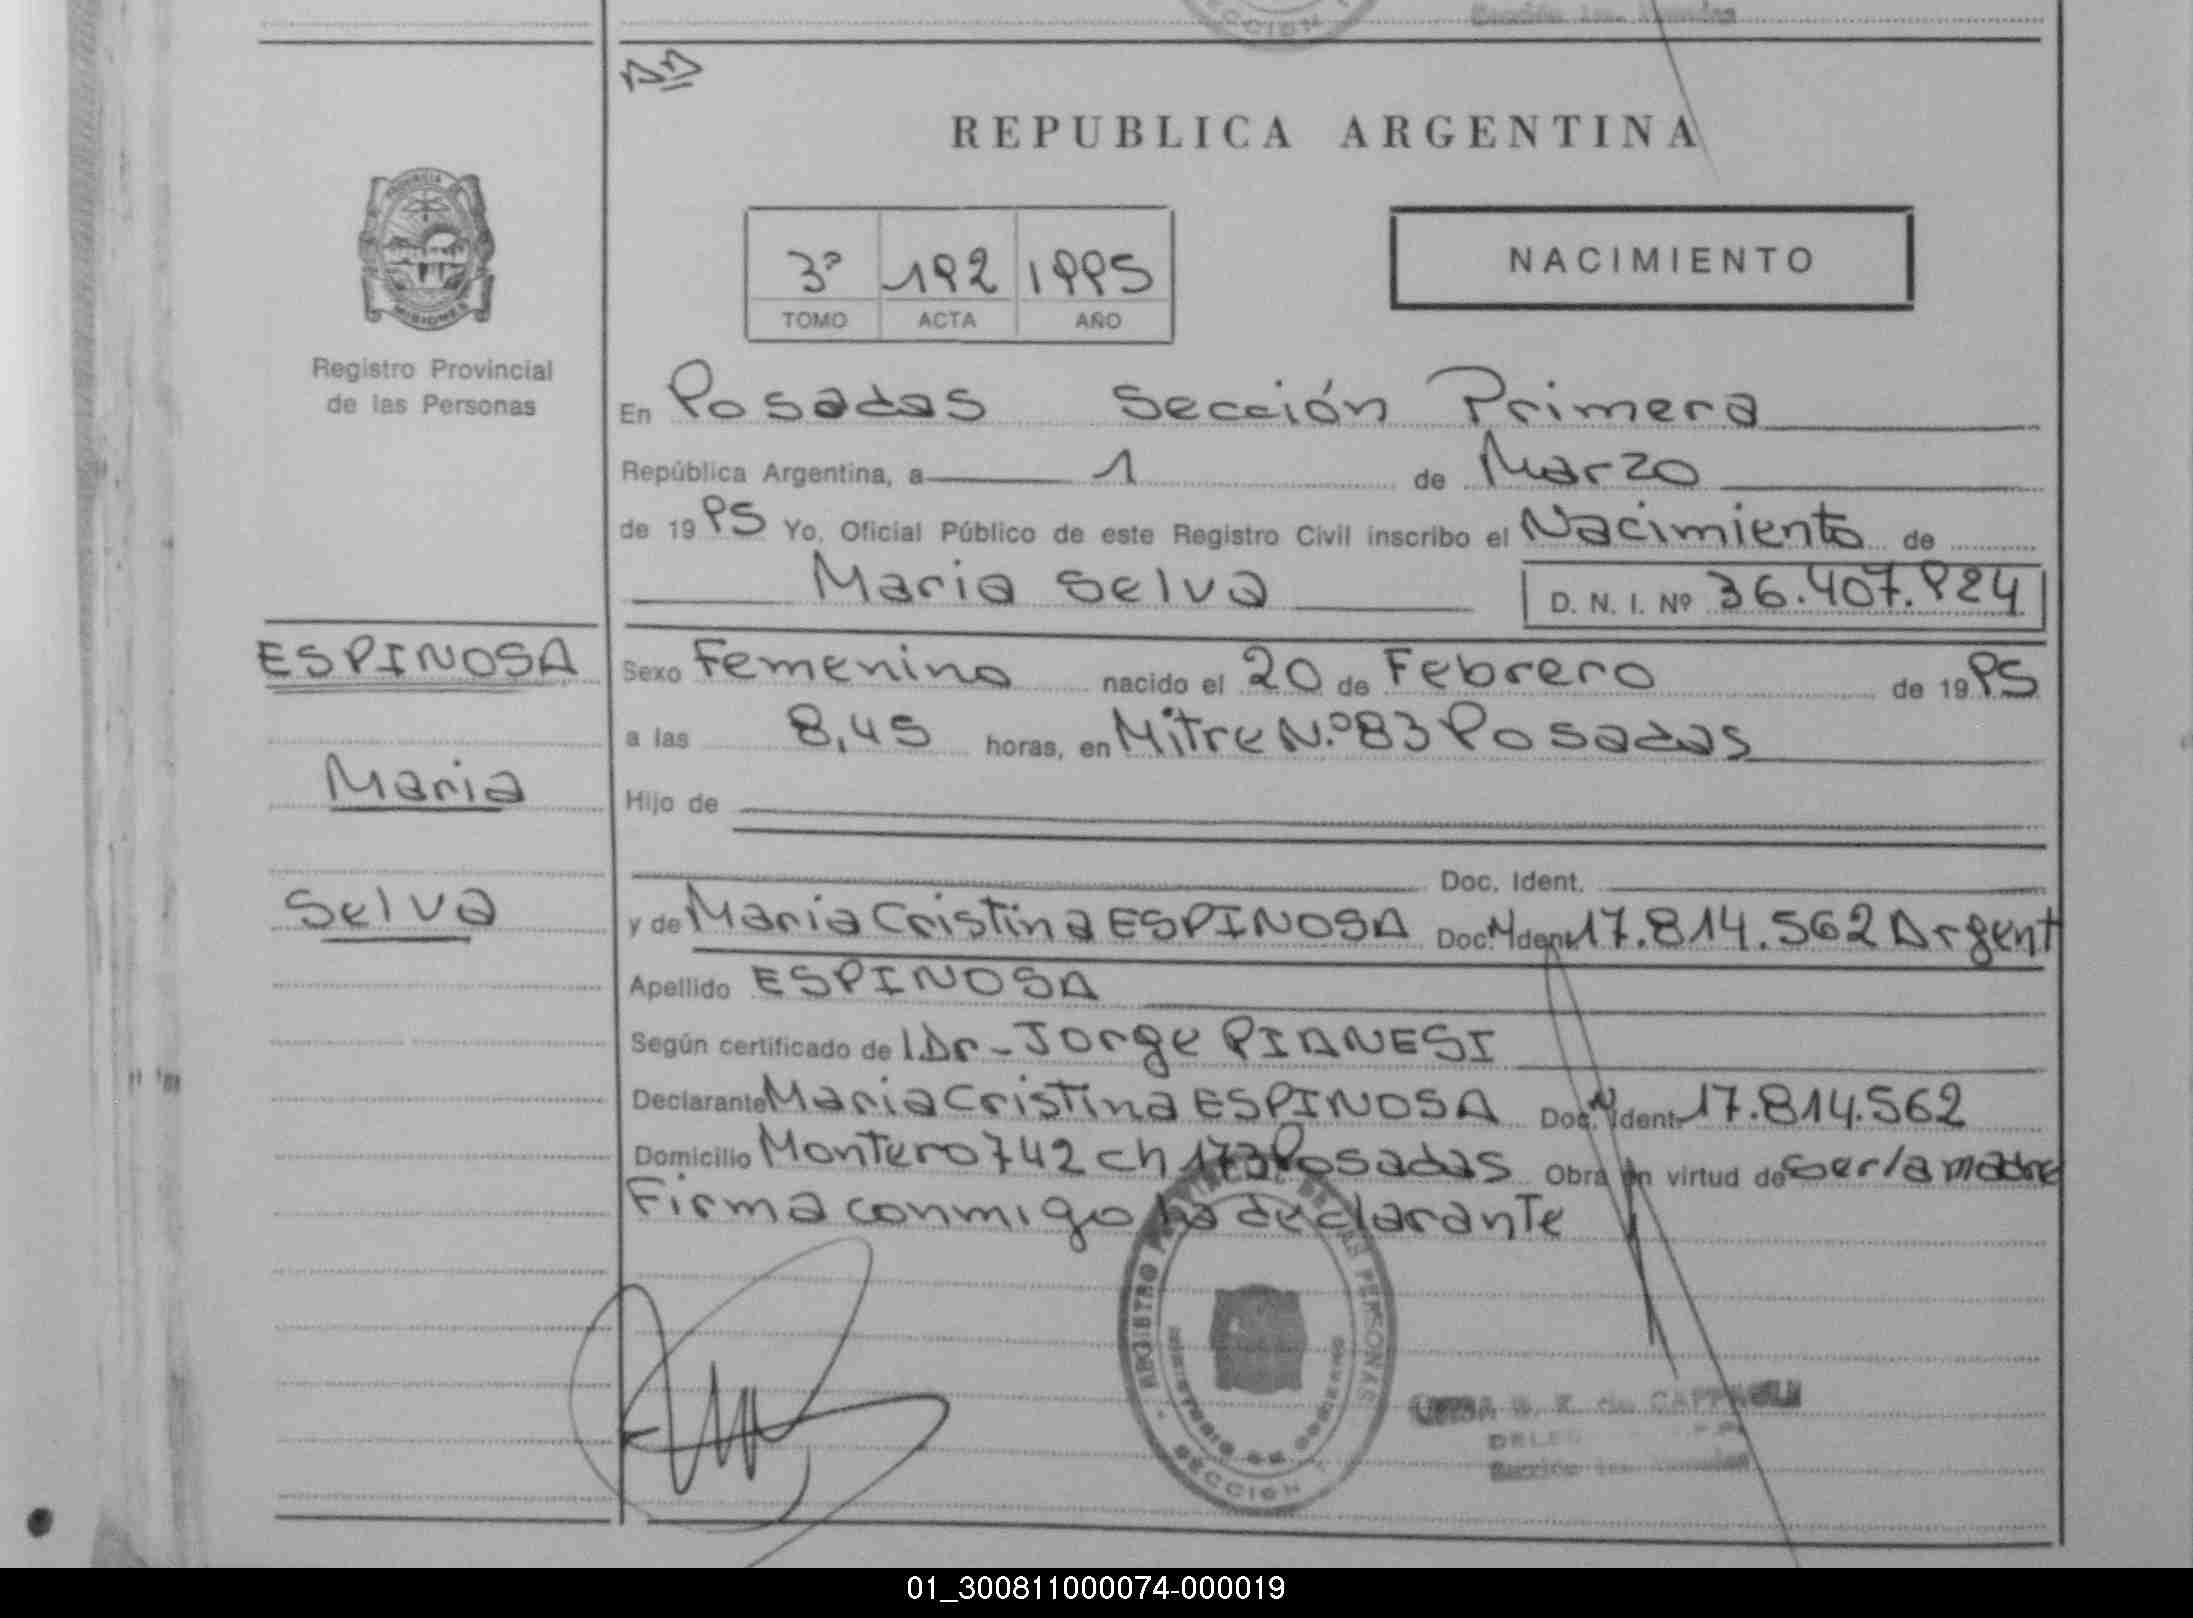 REPUBLICA ARGENTINA
PROVINCIA
MISIONES
Registro Provincial
de las Personas
3º 192 1995
TOMO ACTA AÑO
NACIMIENTO
En Posadas Sección Primera
República Argentina, a 1 de Marzo
de 1995 Yo, Oficial Público de este Registro Civil inscribo el Nacimiento de
Maria Selva D. N. I. Nº 36.407.924
ESPINOSA
Maria
Selva
Sexo Femenino nacido el 20 de Febrero de 1995
a las 8,45 horas, en Mitre N.º 83 Posadas
Hijo de
Doc. Ident.
y de Maria Cristina ESPINOSA Doc. Ident. 17.814.562 Argent
Apellido ESPINOSA
Según certificado de l Dr- Jorge PIANESI
Declarante Maria Cristina ESPINOSA Doc. Ident. 17.814.562
Domicilio Montero 742 ch 173 Posadas Obra en virtud de ser la madre
Firma conmigo la declarante
REGISTRO PERSONAS
MINISTERIO DE GOBIERNO
SECCION 1
01_300811000074-000019